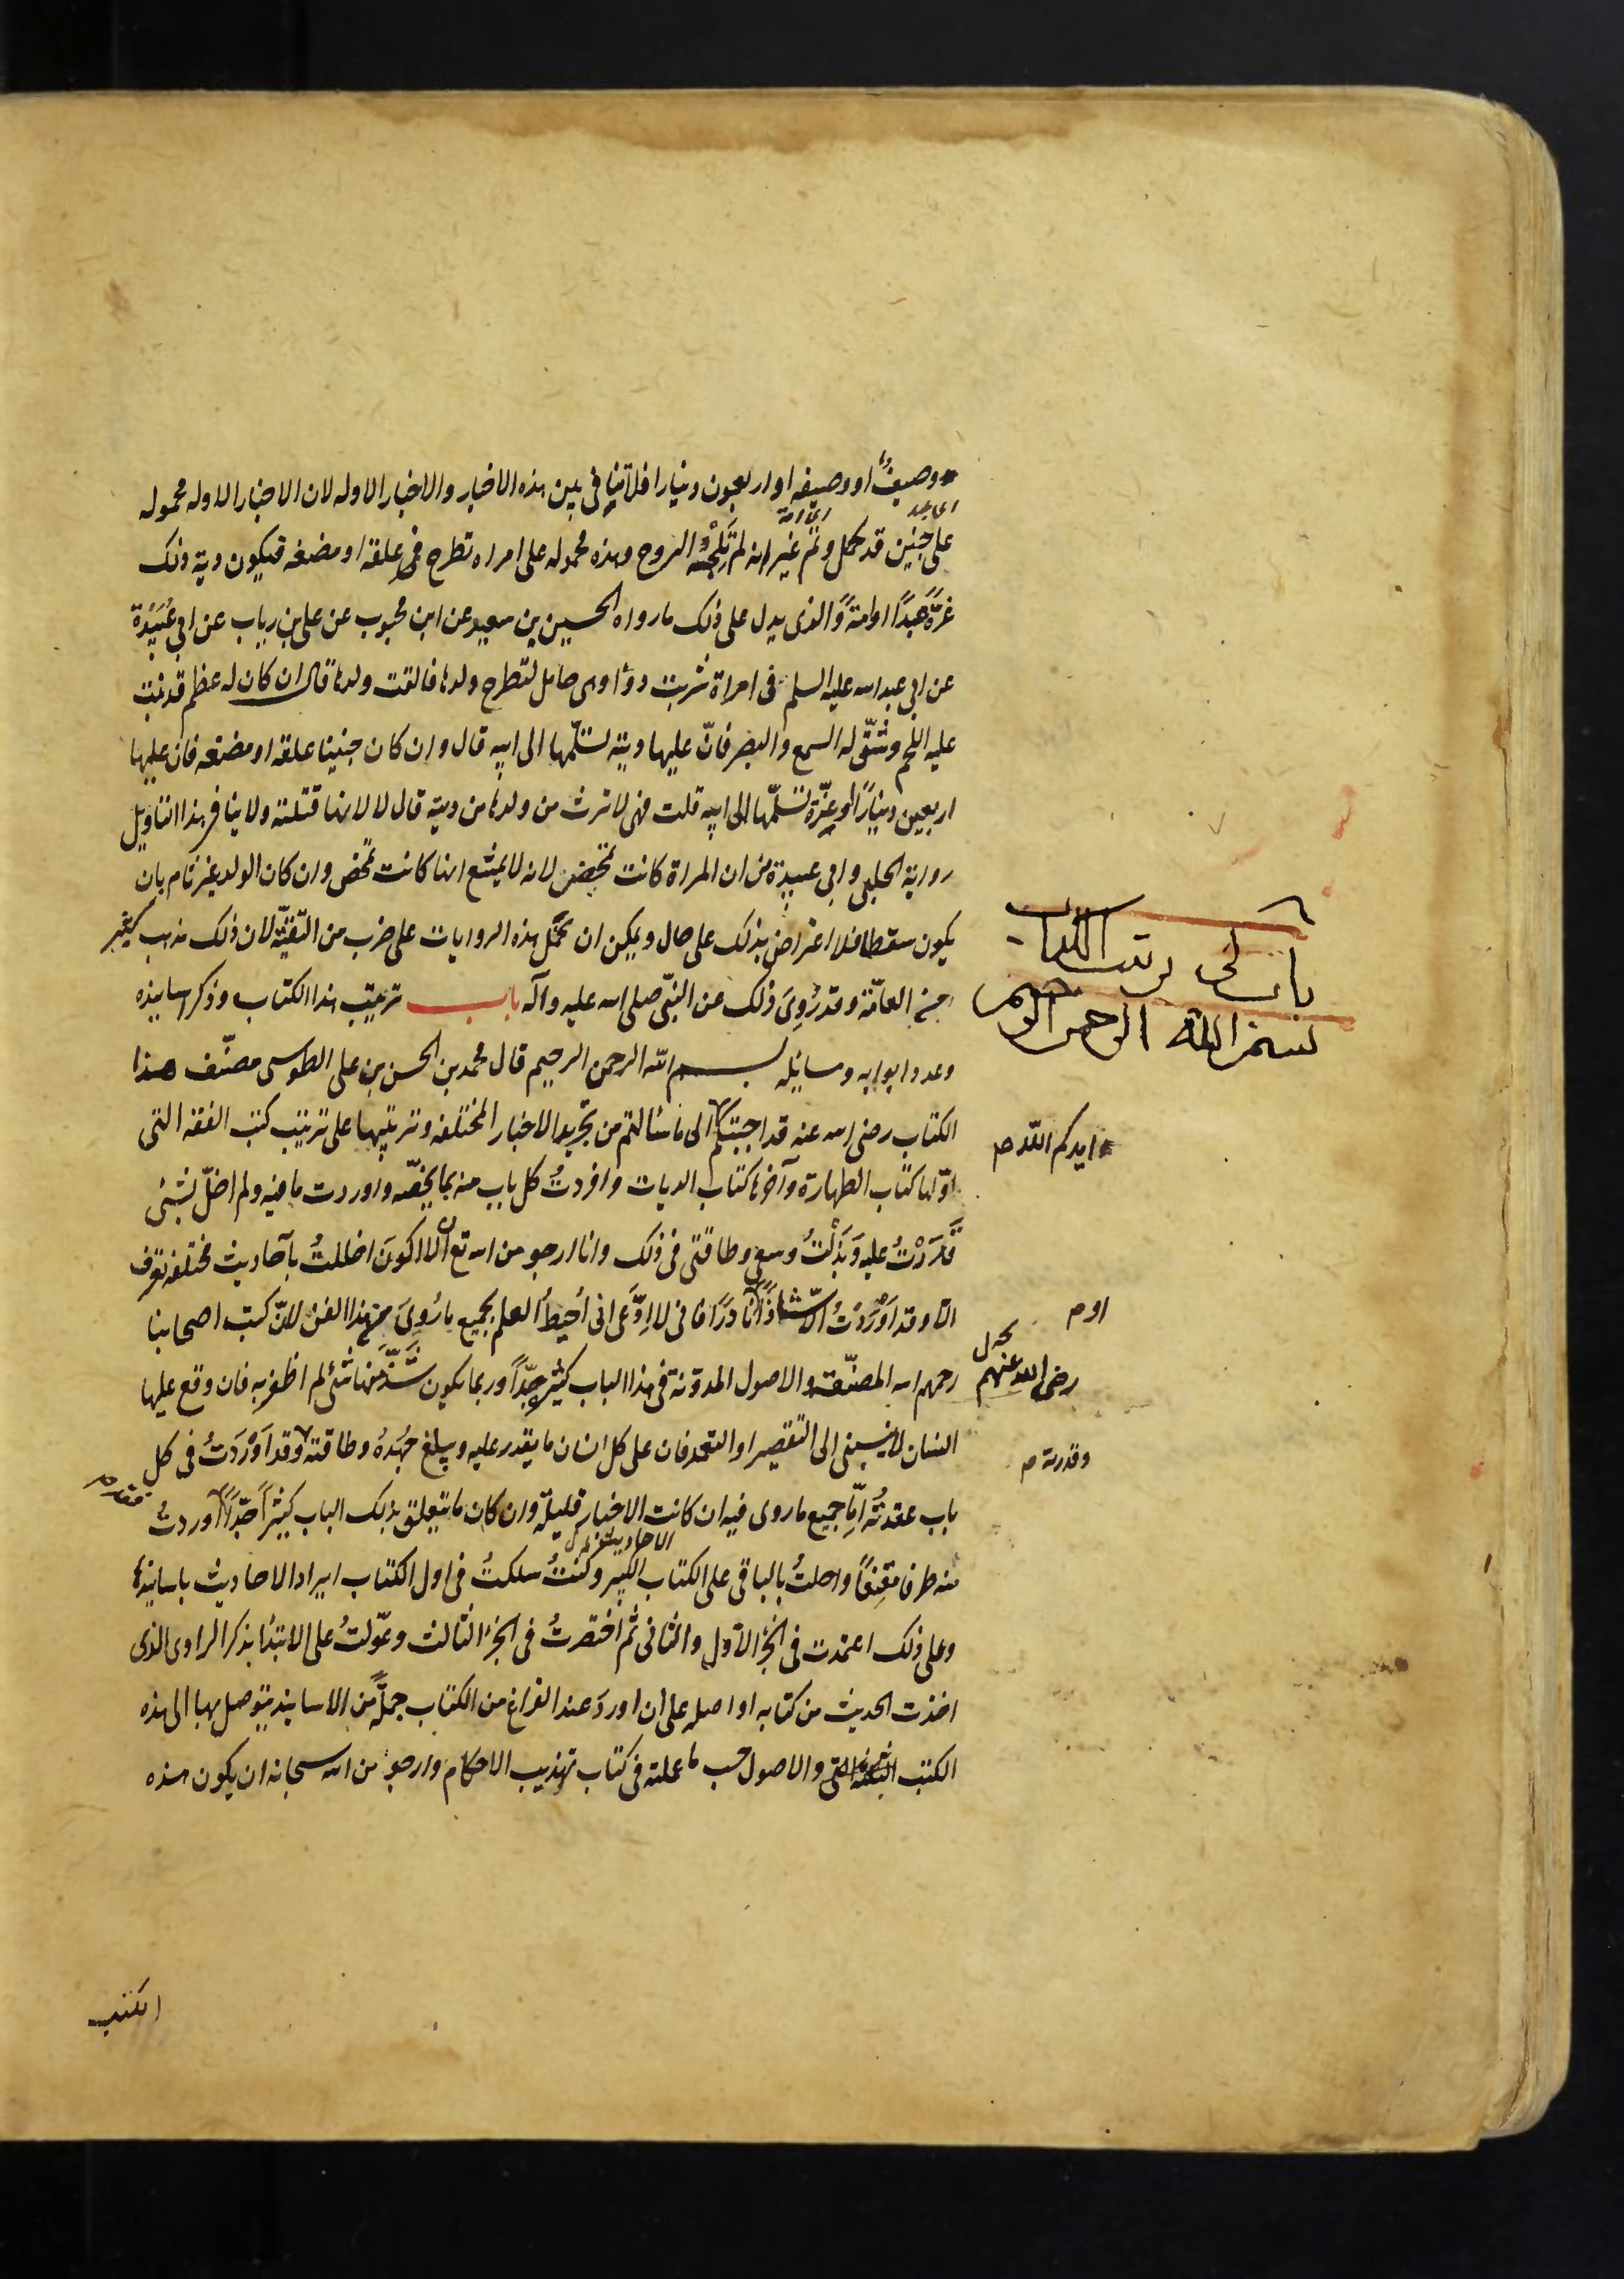 وصيفٌ او وصيفه او اربعون دينارا فلا تنافى بين هذه الاخبار والاخبار الاوله لان الاخبار الاوله محموله
على جنين قد كمل وتم غير انه لم تلجْهُ الروح وهذه محموله على امراه تطرح علقة او مضغه فيكون دية ذلك
غرّةً عبدًا او امةً والذى يدل على ذلك ما رواه الحسين بن سعيد عن ابن محبوب عن على بن رياب عن ابى عُبَيْدَة
عن ابى عبد الله عليه السلم فى امراة شربت دوٓا وهى حامل لتطرح ولدها فالقت ولدها قال ان كان له عظم قد نبت
عليه اللحم وشقّ له السمع والبصر فانّ عليها دية تسلّمها الى ابيه قال وان كان جنينا علقة او مضغه فان عليها
اربعين دينارًا او غرّة تسلّمها الى ابيه قلت فهى لا ترث من ولدها من دية قال لا لانها قتلته ولا ينافى هذا التاويل
رواية الحلبى وابى عبيدة من ان المراة كانت تمخض لانه لا يمتنع انها كانت تمخض وان كان الولد غير تام بان
يكون سقطا فلا اعتراض بذلك على حال ويمكن ان تحمل هذه الروايات على ضرب من التقيّة لان ذلك مذهب كثير
من العامّة وقد رُوِىَ ذلك عن النبّى صلى الله عليه وآله باب ترتيب هذا الكتاب وذكر اسانيده
وعدد ابوابه ومسائله بسم الله الرحمن الرحيم قال محمد بن الحسن بن على الطوسى مصنّف هذا
الكتاب رضى الله عنه قد اجبتكم الى ما سالتم من تجريد الاخبار المختلفه وترتيبها على ترتيب كتب الفقه التى
اوّلها كتاب الطهارة وآخرها كتاب الديات وافردتُ كل باب منه بما يخصّه واوردت ما فيه ولم اخلّ بشئى
قَدَرْتُ عليه وَبَذَلْتُ وسعى وطاقتى فى ذلك وانا ارجو من الله تع ان لا اكونَ اخللتُ بآحاديث مختلفه تعرف
الّا وقد اَوْرَدتُ الّا شاذًا نادرًا فانى لا ادّعى انى اُحيطُ العلم بجميع ما رُوِىَ من هذا الفن لانّ كتب اصحابنا
رحمهم الله المصنّفة والاصول المدونة فى هذا الباب كثير جدّاً وربما يكون شَذّ منها شئ لم اظفر به فان وقع عليها
انسان لا ينسبنى الى التقصير او التعمد فان على كل انسان ما يقدر عليه ويبلغ جهدهُ وطاقته وقد اَوْرَدتُ فى كل
باب عقدتُهُ امّا جميع ما روى فيه ان كانت الاخبار قليلة وان كان ما يتعلق بذلك الباب كثيراً جدّاً اوردتُ
منه طرفا مقنعاً واحلتُ بالباقى على الكتاب الكبير وكنتُ سلكتُ فى اول الكتاب ايراد الاحاديث باسانيدها
وعلى ذلك اعتمدت فى الجزء الاول والثانى ثم اختصرتُ فى الجزء الثالث وعوّلتُ على الابتدا بذكر الراوى الذى
اخذت الحديث من كتابه او اصله على ان اوردَ عند الفراغ من الكتاب جملةً من الاسانيد يتوصل بها الى هذه
الكتب والاصول حسب ما عملته فى كتاب تهذيب الاحكام وارجو من الله سبحانه ان يكون هذه
الكتب
اى عبد
اى امة
باب فى ترتيب الكتاب
بسم الله الرحمن الرحيم
ايدكم الله
رضى الله عنهم
وقدرته